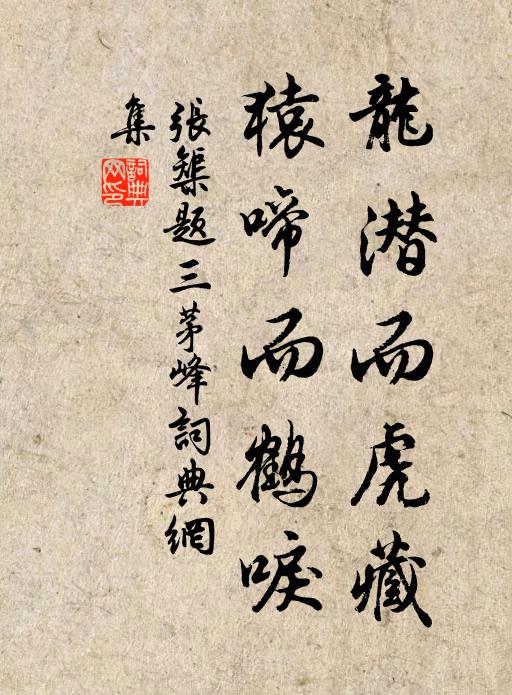 龍潛而虎藏
猿啼而鶴唳
張榘題三茅峰詞典網
集
詞典
網印